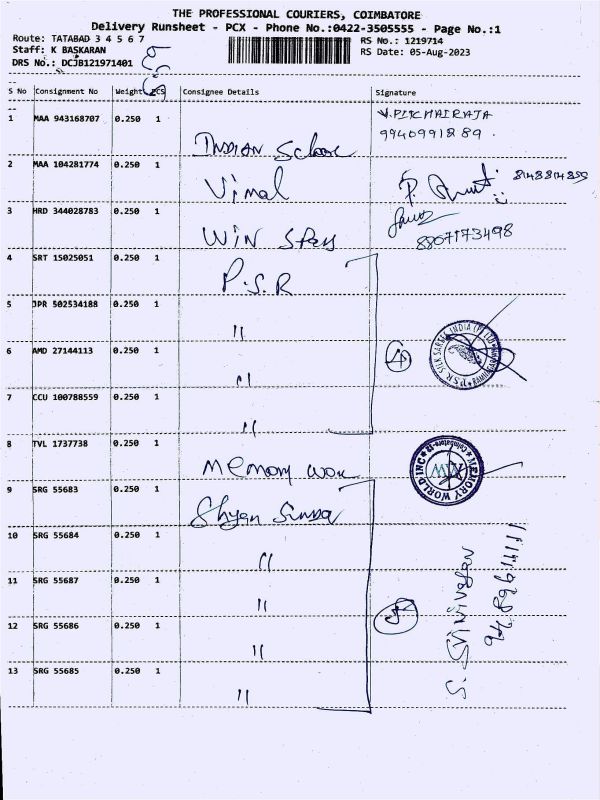 THE PROFESSIONAL COURIERS, COIMBATORE
Delivery Runsheet - PCX - Phone No.:0422-3505555 - Page No.:1
Route: TATABAD 3 4 5 6 7
RS No.: 1219714
Staff: K BASKARAN
RS Date: 05-Aug-2023
DRS No.: DCJB121971401
S No Consignment No Weight PCS Consignee Details Signature
1 MAA 943168707 0.250 1 INDIAN School V.PITCHAIRAJA
9940991889.
2 MAA 104281774 0.250 1 Vimal 8148814855
3 HRD 344028783 0.250 1 WIN Stays
8807173498
4 SRT 15025051 0.250 1 P.S.R
5 JPR 502534188 0.250 1 "
6 AMD 27144113 0.250 1 " 4
7 CCU 100788559 0.250 1 "
8 TVL 1737738 0.250 1 Memory Wor
MEMORY WORLD INC
9 SRG 55683 0.250 1 Shyam Sundar
10 SRG 55684 0.250 1 "
11 SRG 55687 0.250 1 " 5
12 SRG 55686 0.250 1 "
13 SRG 55685 0.250 1 "
S. Srinivasan